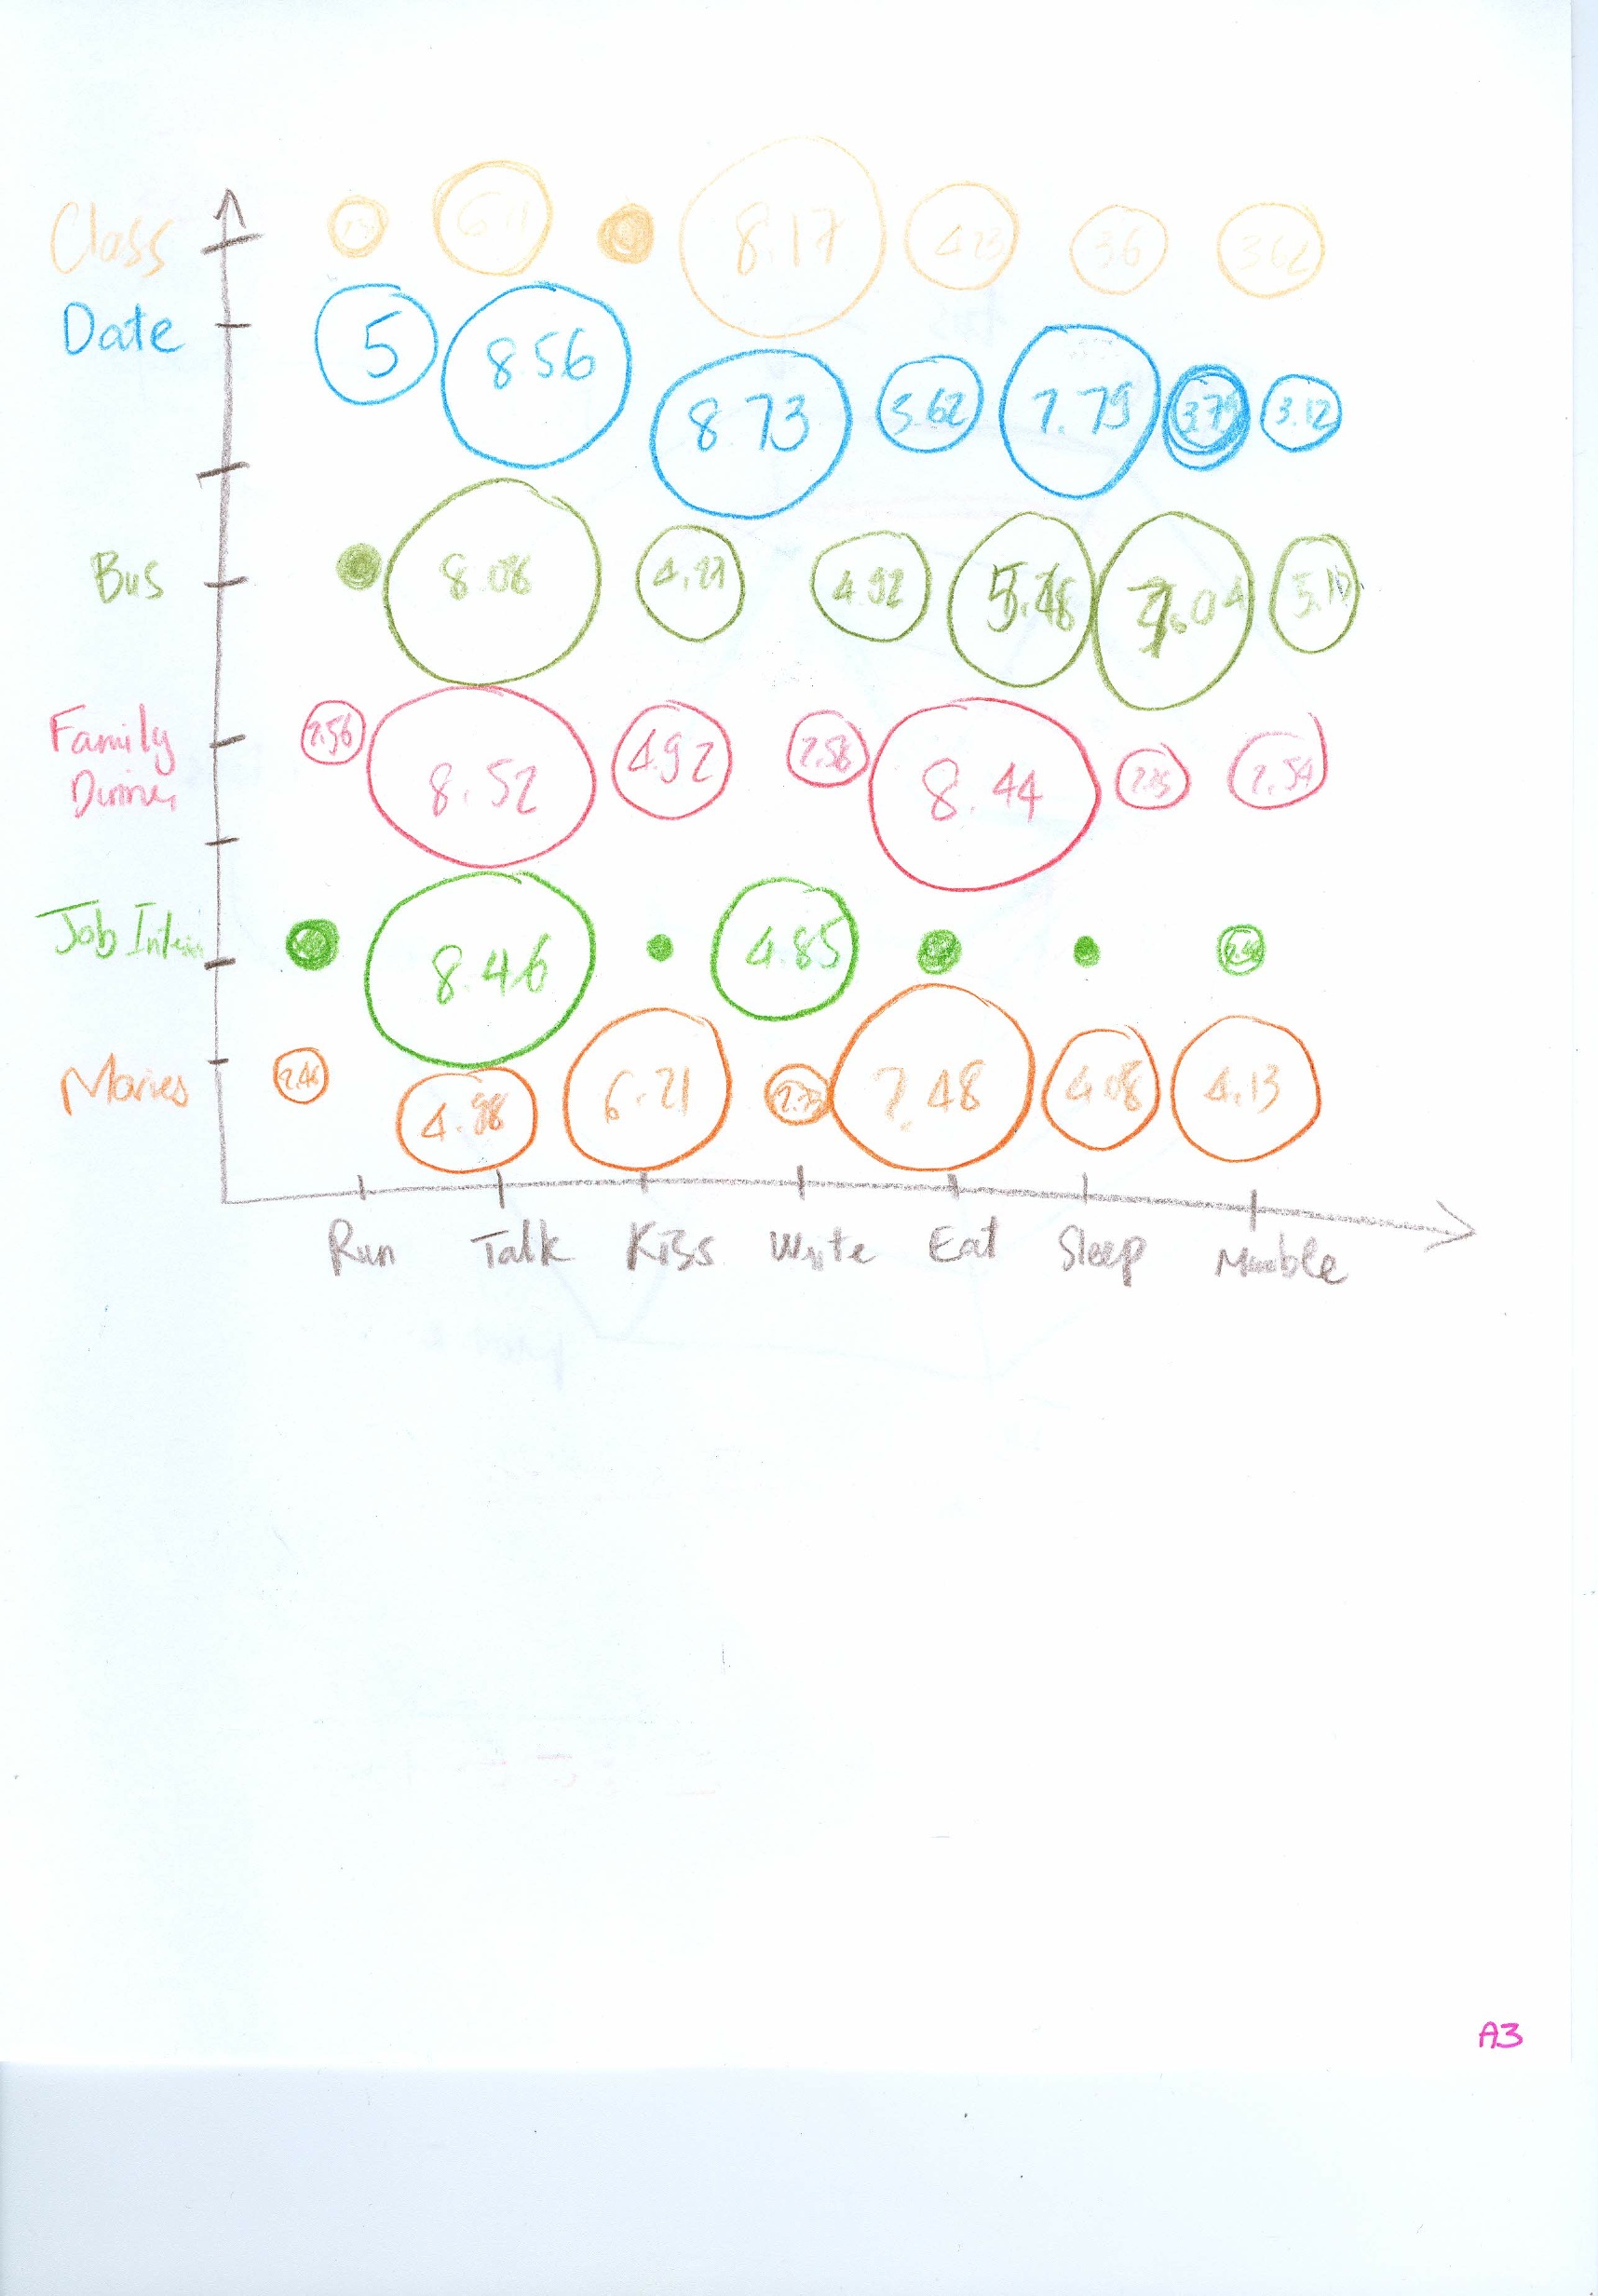 Class 6.11 8.17 4.23 3.6 3.62
Date 5 8.56 8.73 3.62 7.79 3.79 3.12
Bus 8.08 4.27 4.92 7.04
Family 2.56 8.52 4.92 2.58 8.44 2.54
Job 8.46 4.85
Movies 2.46 4.98 6.21 7.48 4.08 4.13
Run Talk Kiss Write Eat Sleep Mumble
A3